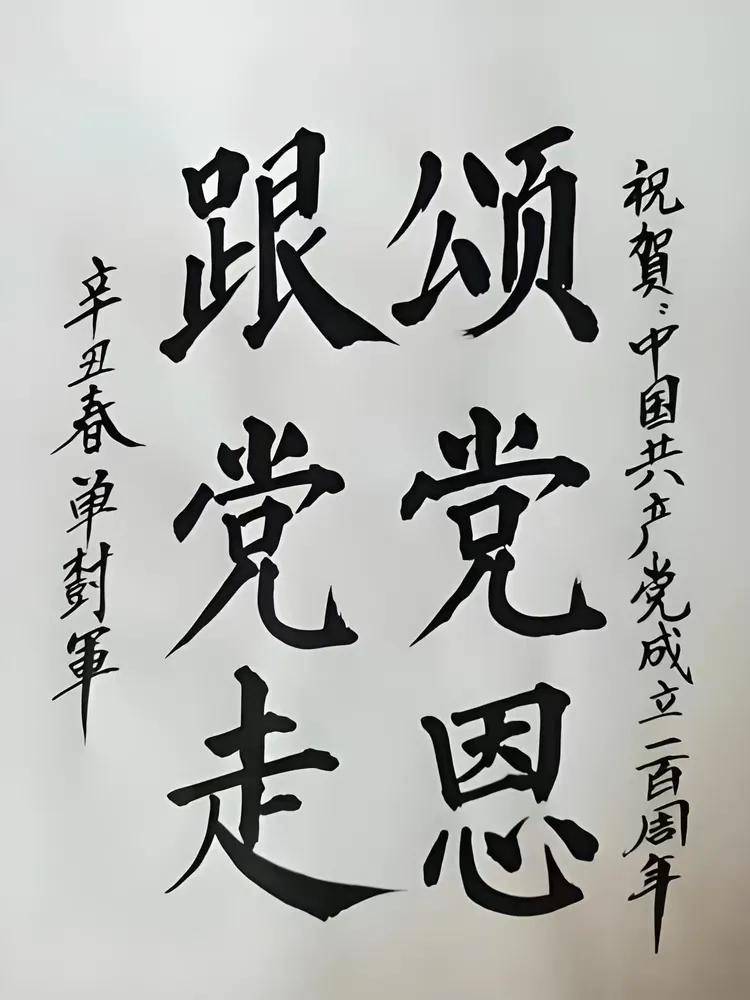 祝賀:中国共产党成立一百周年
颂党恩
跟党走
辛丑春单樹軍